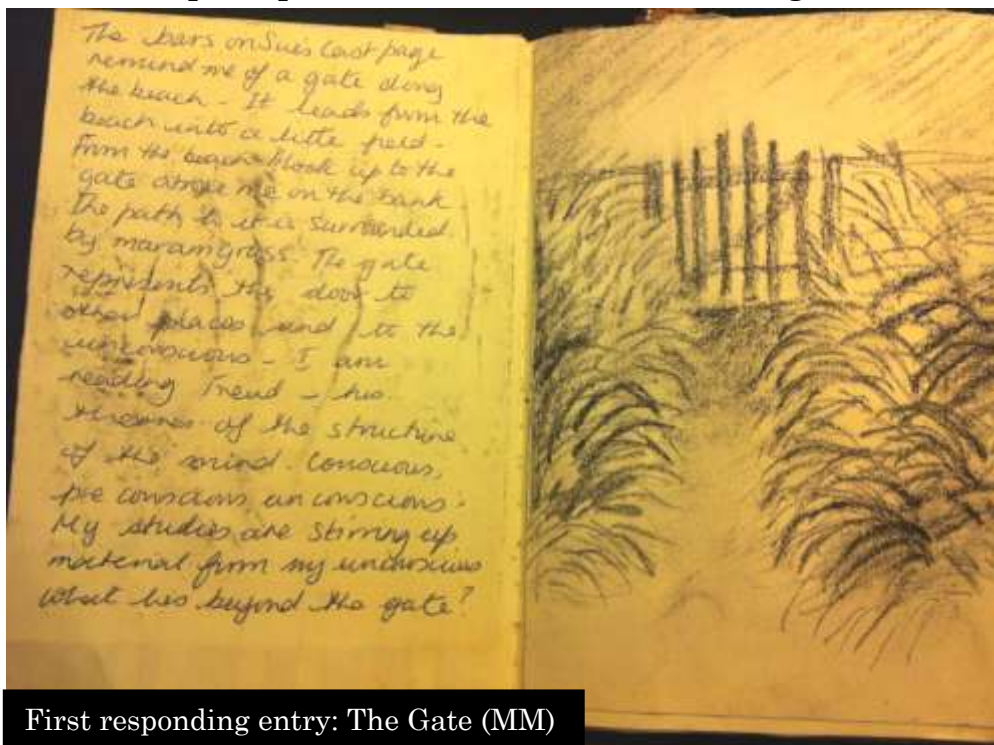 The bars on Sue's last page
remind me of a gate along
the beach - It leads from the
beach into a little field -
From the beach I look up to the
gate above me on the bank
The path to it is surrounded
by maram grass. The gate
represents the door to
other places and to the
unconscious - I am
reading Freud - his
theories of the structure
of the mind. Conscious,
pre conscious, unconscious.
My studies are stirring up
material from my unconscious
What lies beyond the gate?
First responding entry: The Gate (MM)